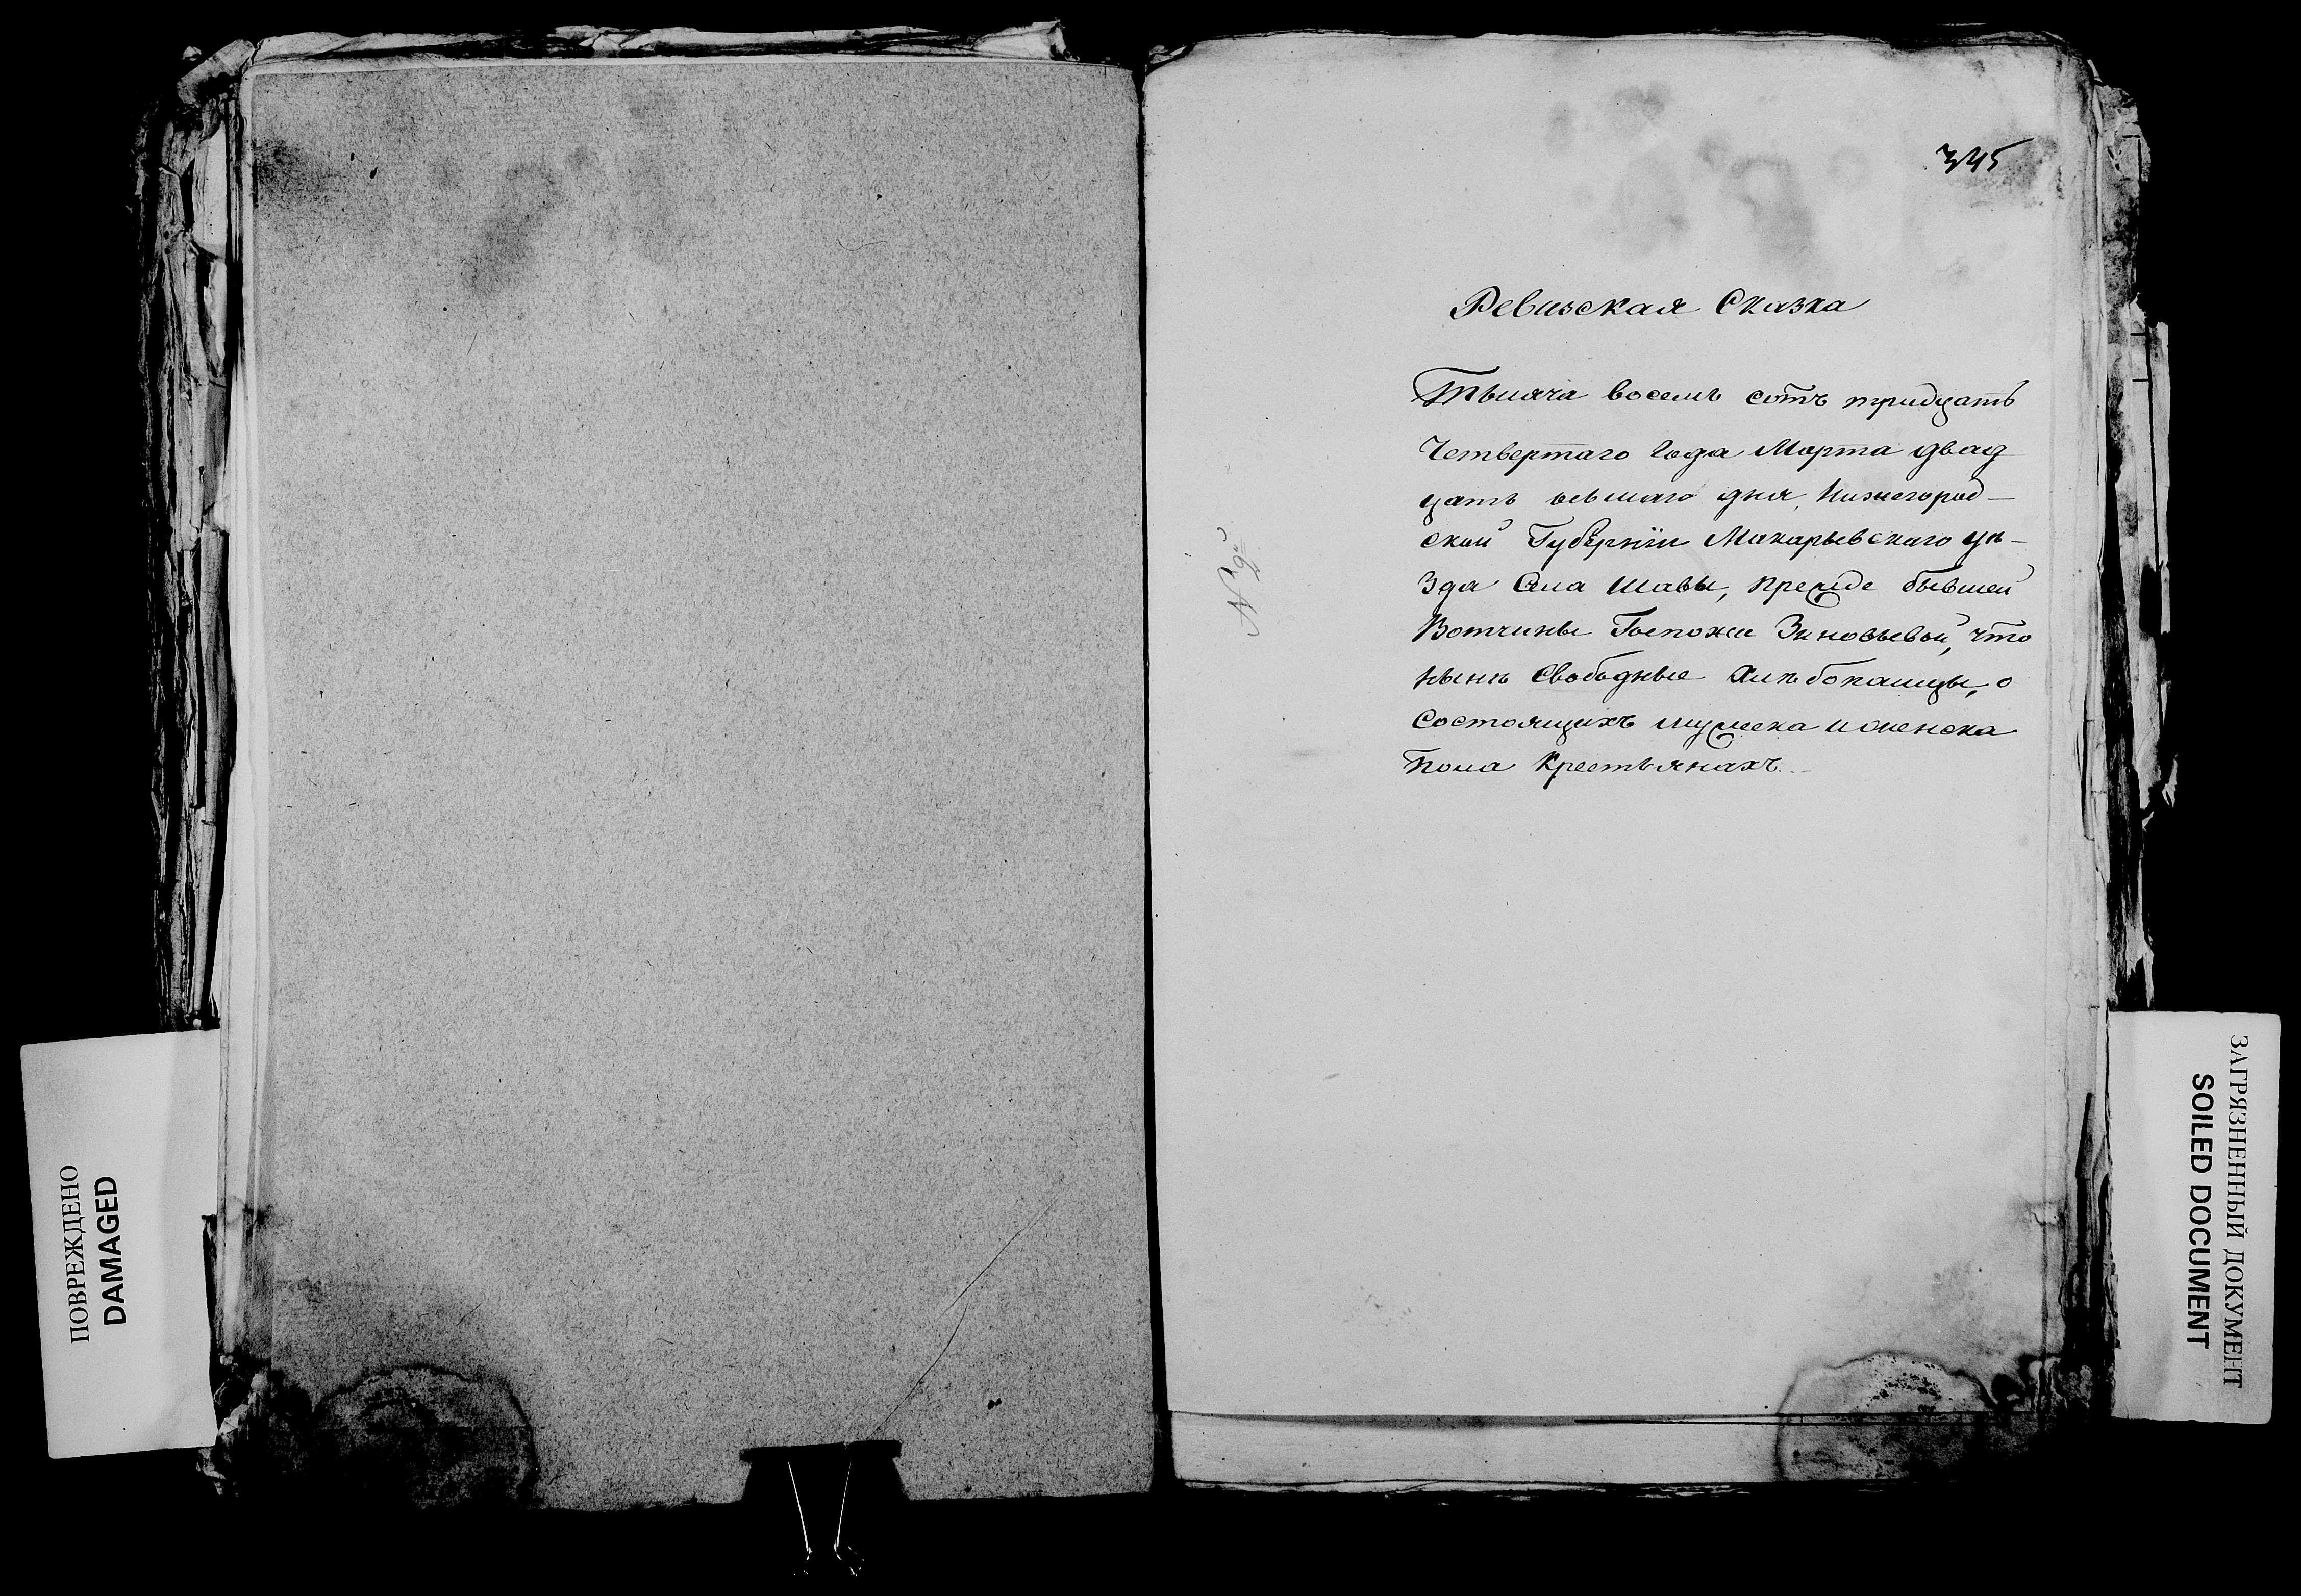 345
Ревизская Сказка
Тысяча восемь сотъ тридцать
Четвертаго Года Марта двад
цать осьмаго дня, Нижегород-
ской Губерніи Макарьевскаго уѣ-
зда Села Шавы, прежде бывшей
Вотчины Госпожи Зиновьевой, что
нынѣ Свободные Хлѣбопашцы, о
состоящихъ мужеска и женска
пола Крестьянахъ.
ПОВРЕЖДЕНО
DAMAGED
ЗАГРЯЗНЕННЫЙ ДОКУМЕНТ
SOILED DOCUMENT